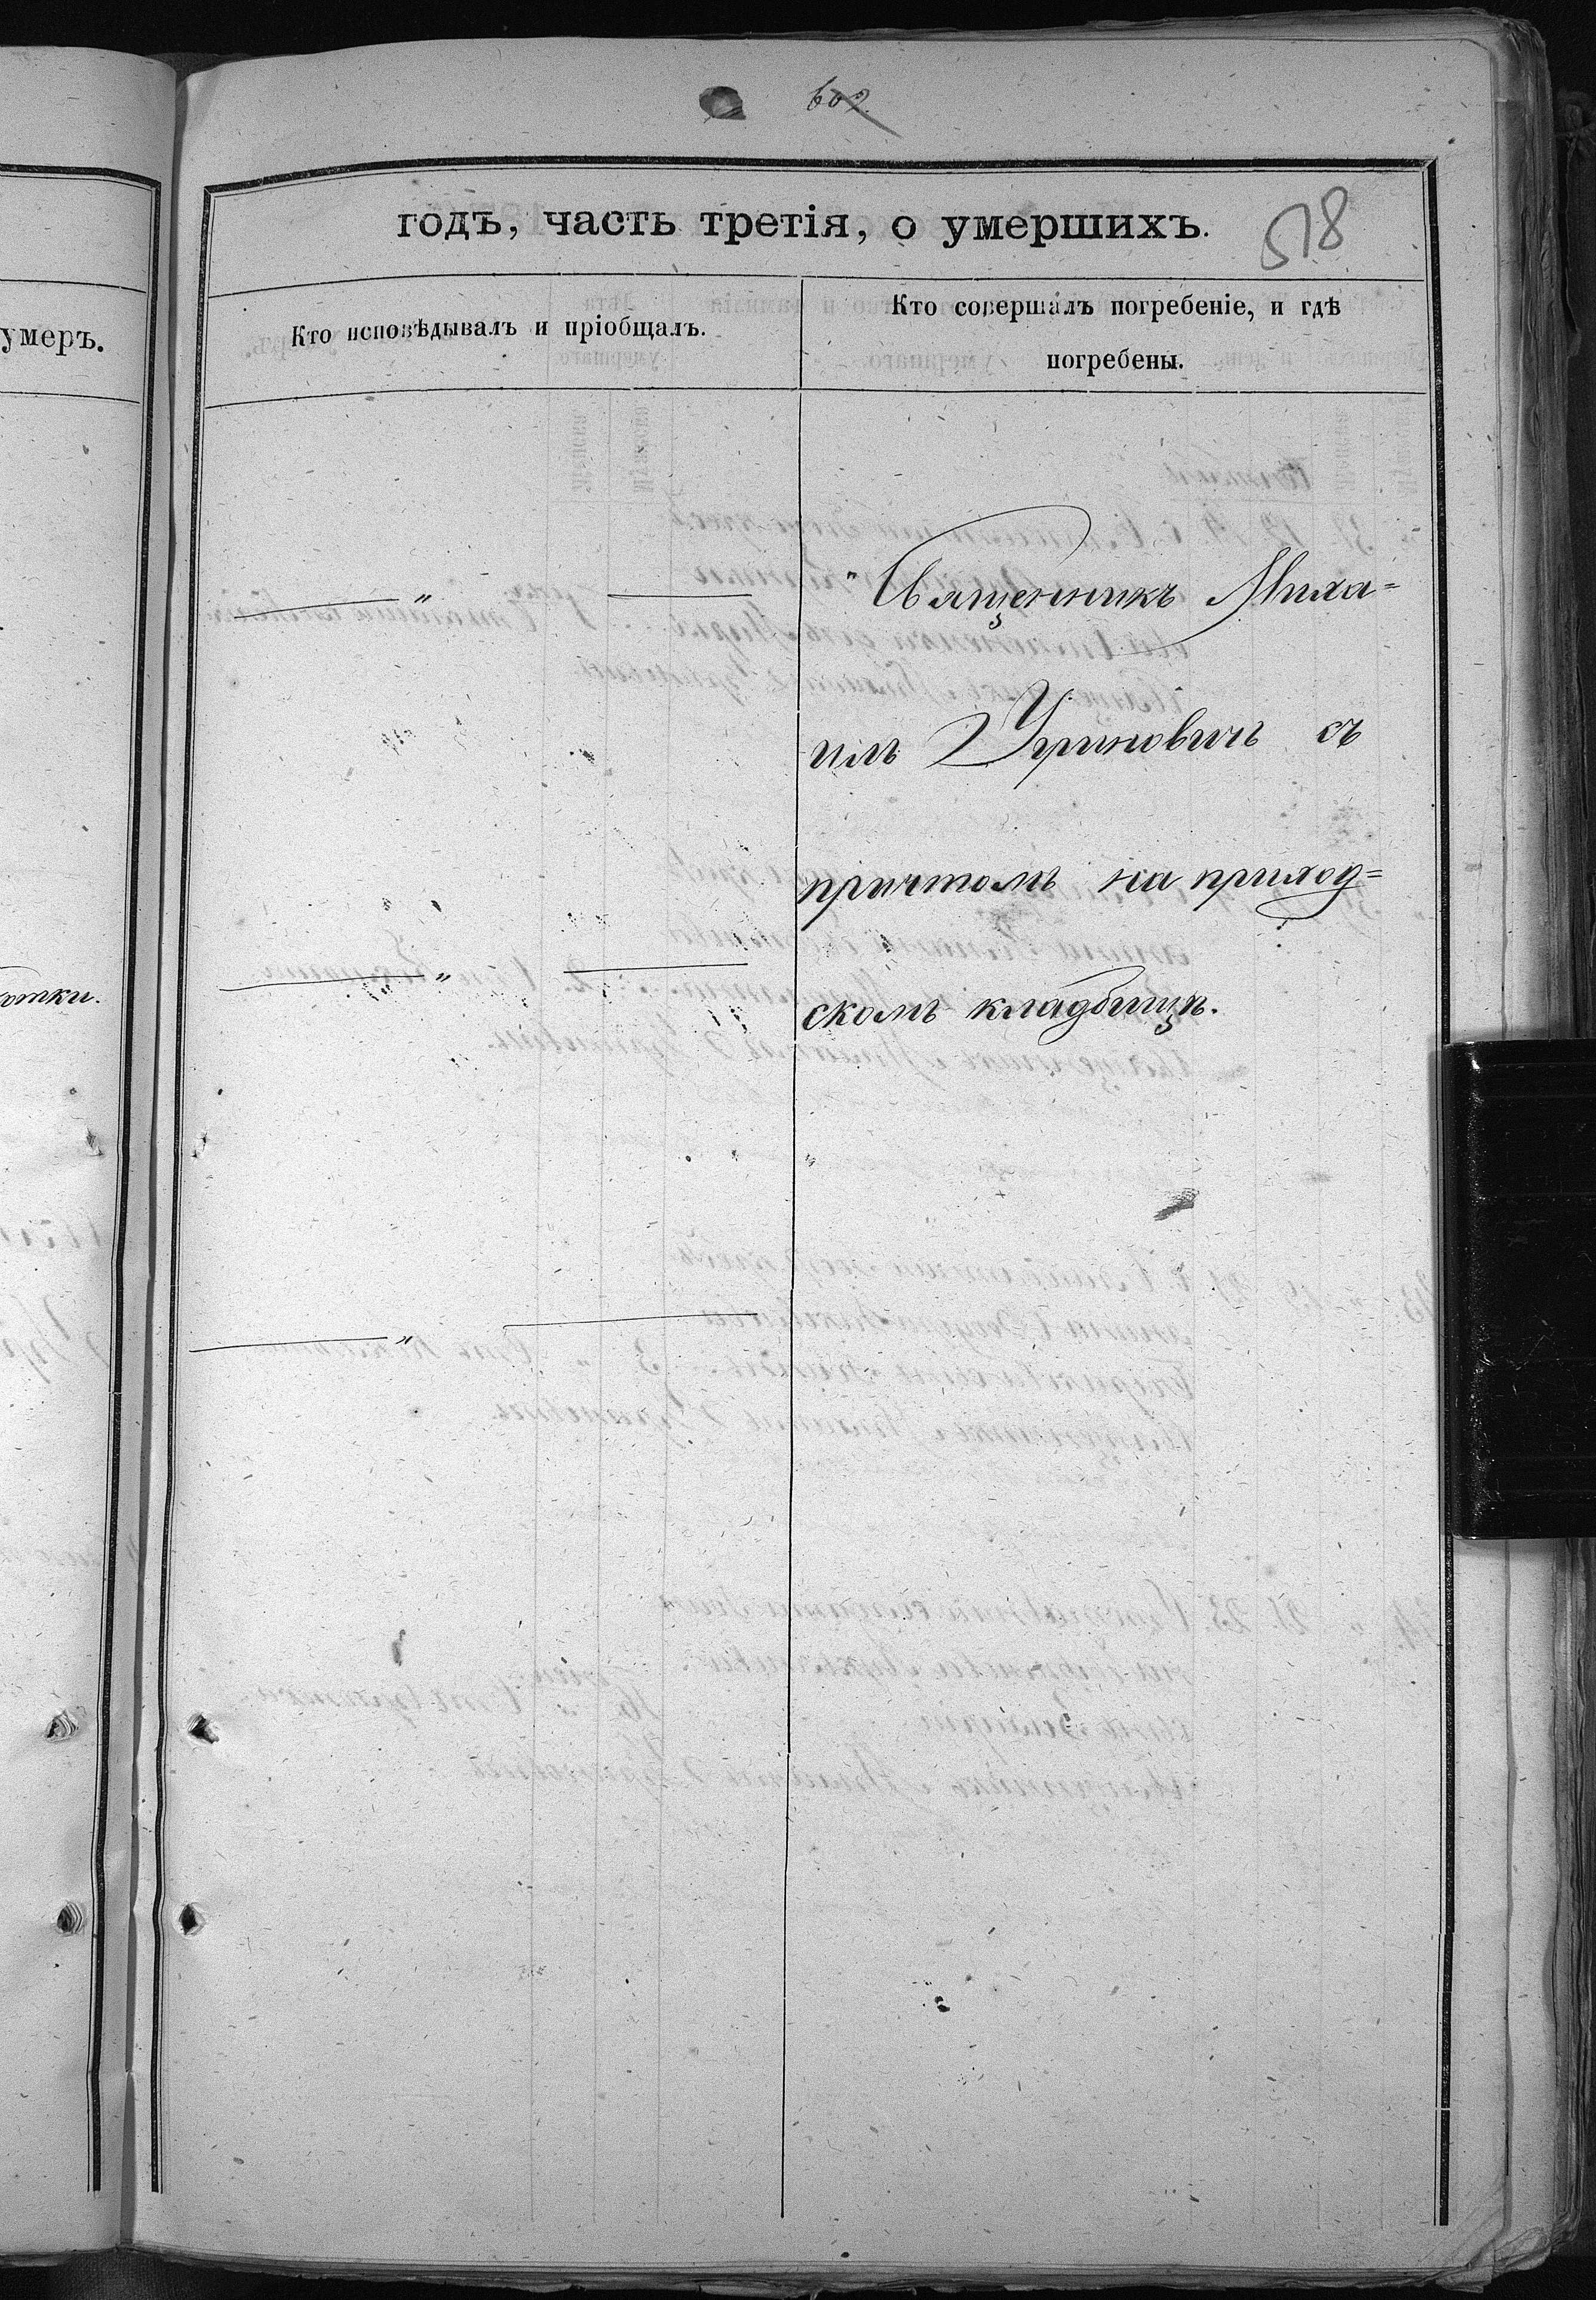 602
годъ, часть третія, о умершихъ.
518
умеръ.
Кто исповѣдывалъ и пріобщалъ.
Кто совершалъ погребеніе, и гдѣ
погребены.
" Священникъ Миха=
илъ Угриновичъ съ
причтомъ на приход=
скомъ кладбищѣ.
"
"
"